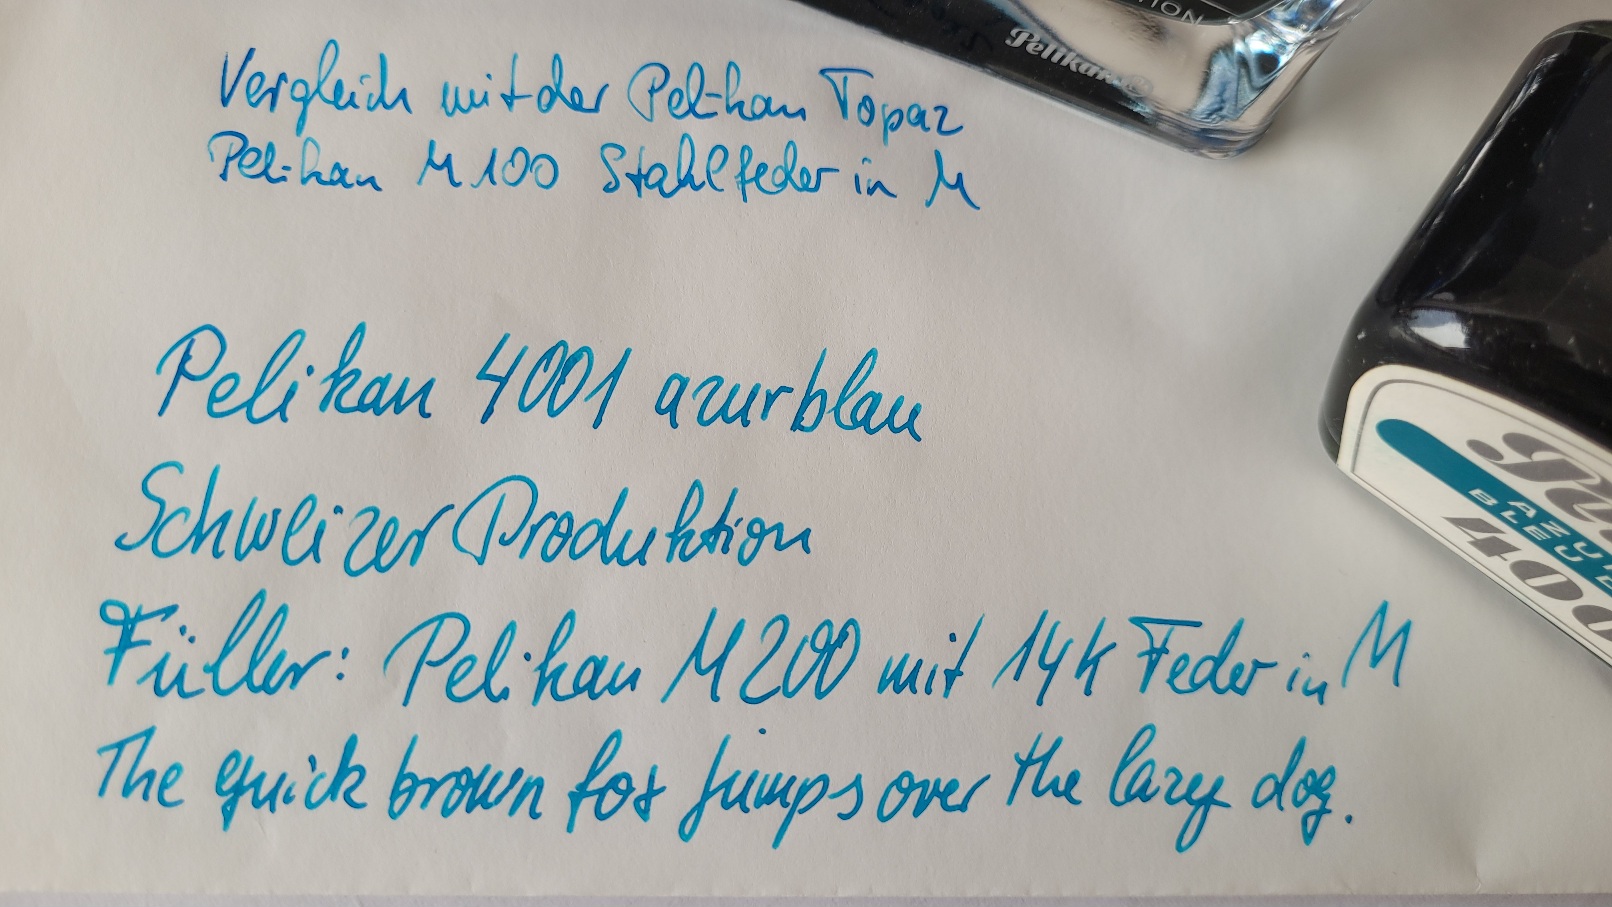 TION
Pelikan
Vergleich mit der Pelikan Topaz
Pelikan M100 Stahlfeder in M
Pelikan 4001 azurblau
Schweizer Produktion
Füller: Pelikan M200 mit 14K Feder in M
The quick brown fox jumps over the lazy dog.
AZU
BLEU
400